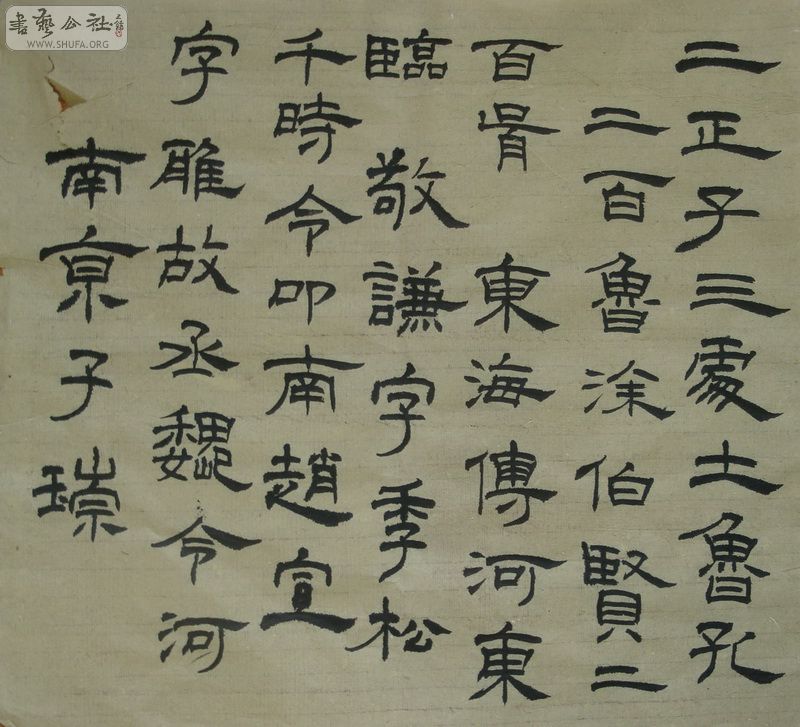 二正子三處土魯孔
二百魯涂伯賢二
百胥東海傅河東
臨敬謙字季松
千時令叩南趙宣
字雕故丞魏令河
南京子
書藝公社
WWW.SHUFA.ORG